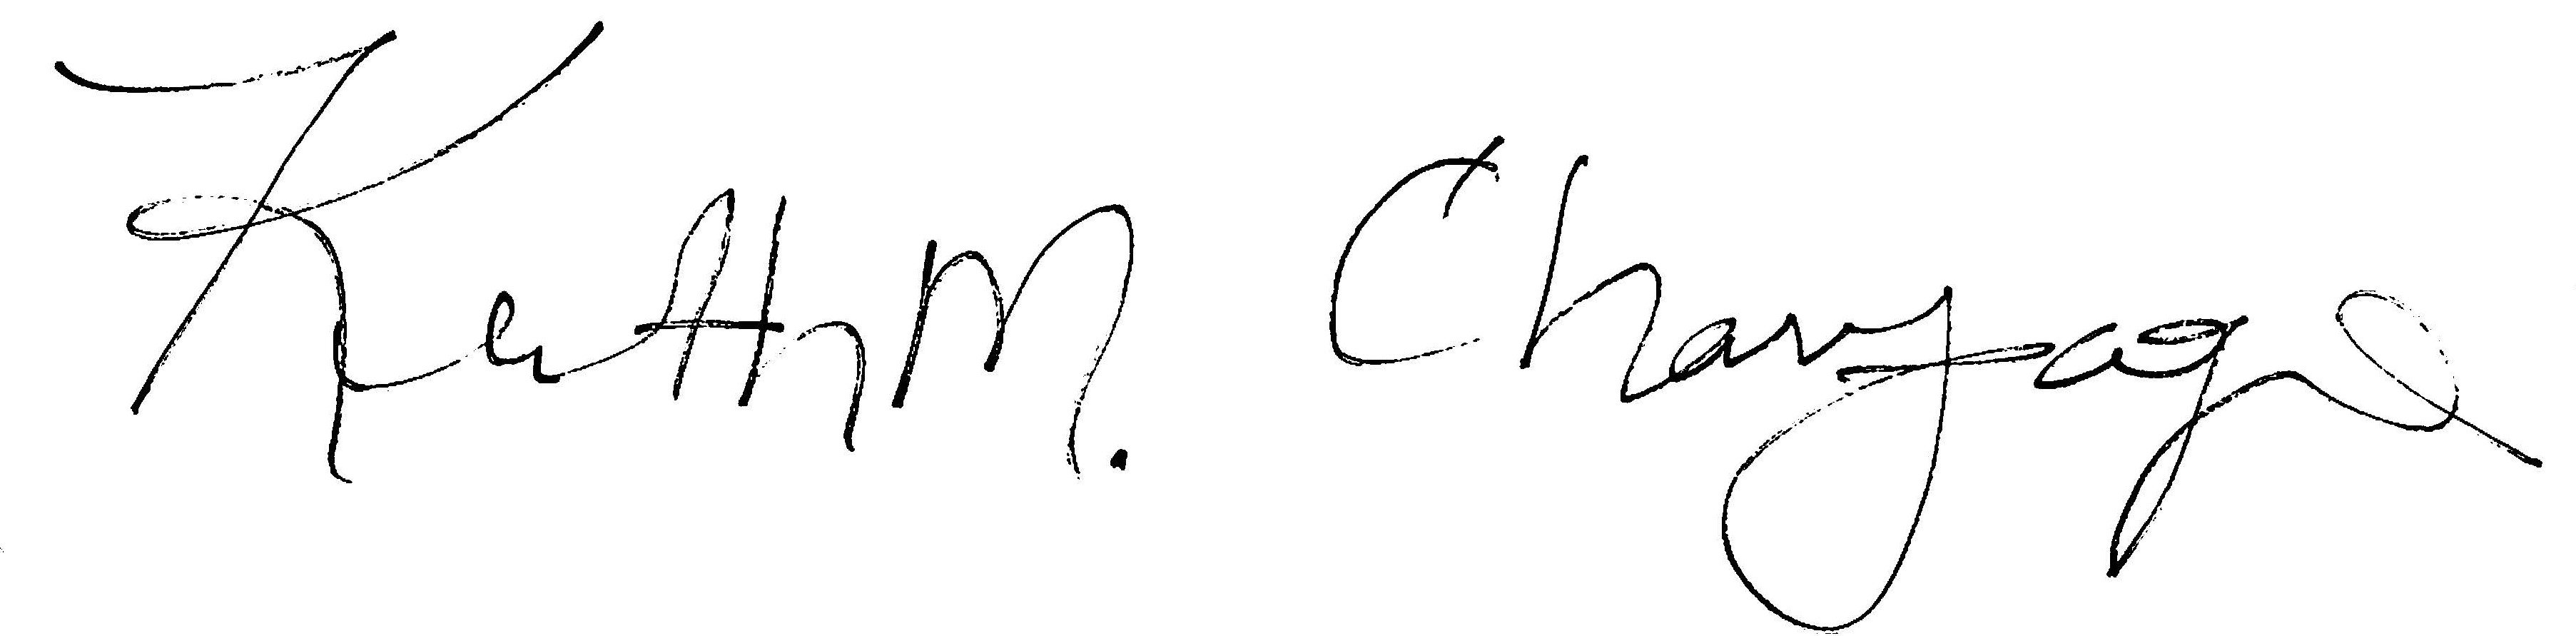 Keith M. Champagne